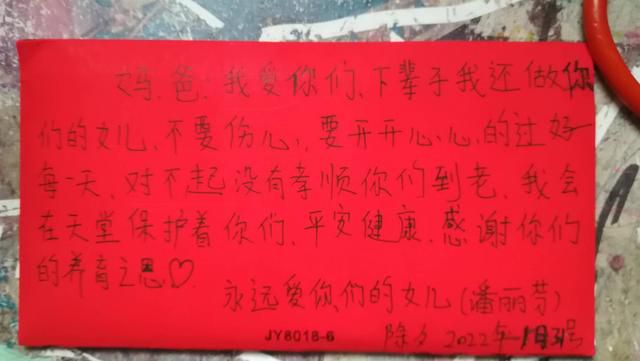 妈、爸：我爱你们、下辈子我还做你
们的女儿、不要伤心、要开开心心的过好
每一天、对不起没有孝顺你们到老、我会
在天堂保护着你们、平安健康、感谢你们
的养育之恩♡
永远爱你们的女儿（潘丽芬）
JY8018-6
除夕 2022年1月31号